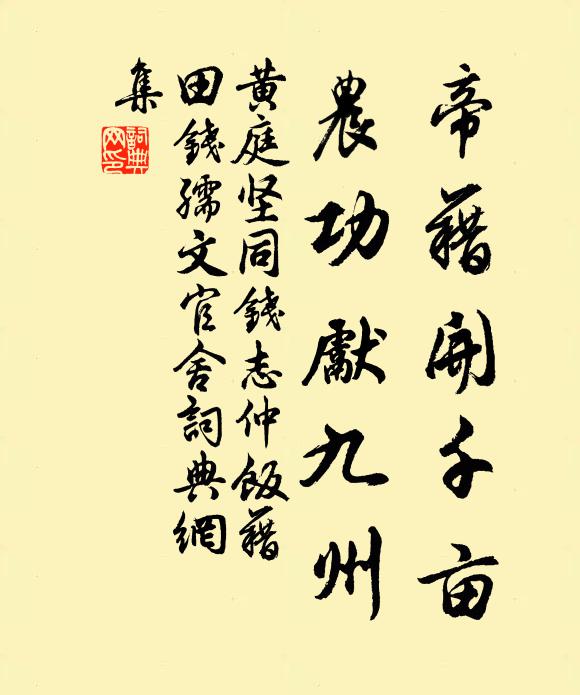 帝藉開千亩
農功獻九州
黄庭坚同錢志仲飯藉
田錢孺文官舍詞典網
集
詞典
网印